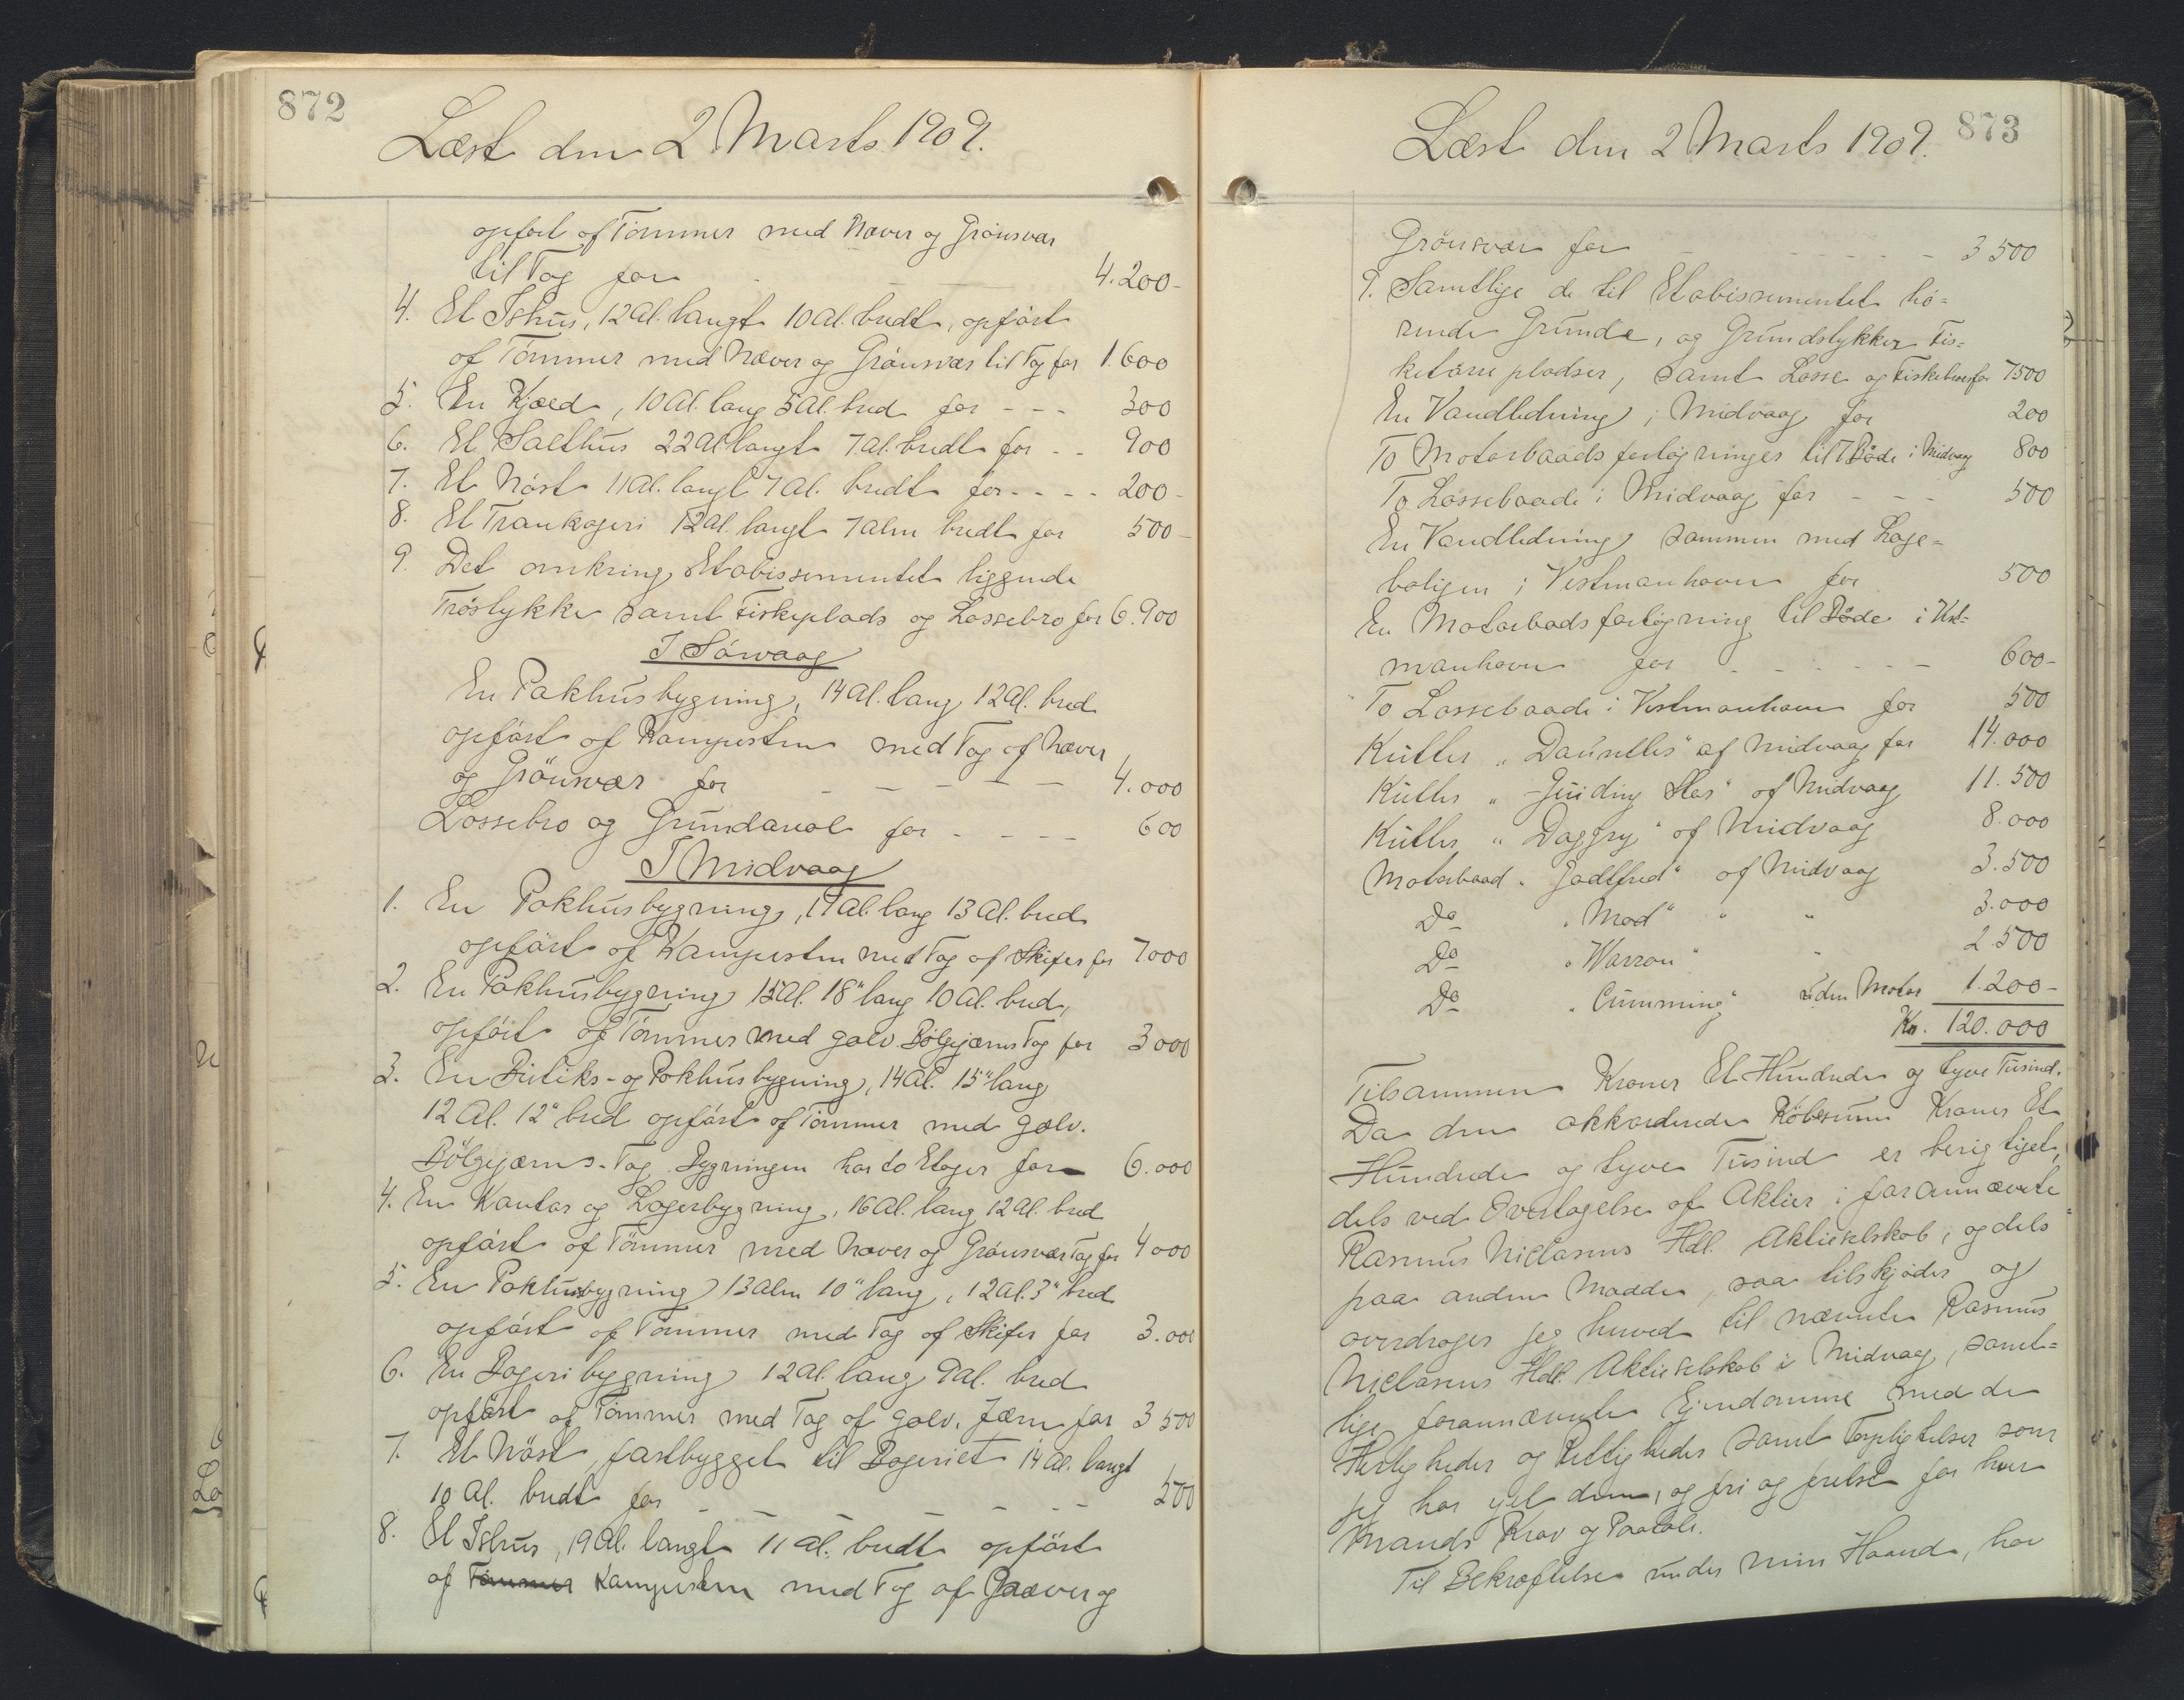 872
Læst den 2 Marts 1909.
opført af Tømmer med Næver og Grønsvær
til Tag for 4.200-
4. Et Ishus, 12 Al. langt 10 Al. bredt, opført
af Tømmer med Næver og Grønsvær til Tag for 1.600
5. En Kjæld, 10 Al. lang 5 Al. bred for - - - 300
6. Et Salthus 22 Al langt 7 Al. bredt for - - 900
7. Et Nøst 11 Al. langt 7 Al. bredt for - - - - 200-
8. Et Trankogeri 12 Al. langt 7 Alm bredt for 500-
9. Det omkring Etabissementet liggende
Trøstykke samt Fiskeplads og Lossebro for 6.900
I Sørvaag
En Pakhusbygning, 14 Al. lang, 12 Al. bred
opført af Kampesten med Tag af Næver
og Grönsvær for - - - - - 4.000
Lossebro og Grundareal for - - - - 600
I Midvaag
1. En Pakhusbygning, 17 Al. lang 13 Al. bred
opført af Kampesten med Tag af Skifer for 7000
2. En Pakhusbygning 15 Al. 18" lang 10 Al. bred,
opført af Tømmer med galv. Bölgejærns Tag for 3000
3. En Butiks- og Pakhusbygning, 14 Al. 15" lang
12 Al. 12" bred opført af Tømmer med galv.
Bölgejærns-Tag. Bygningen har to Etager for 6.000
4. En Kontor og Lagerbygning, 16 Al. lang 12 Al. bred
opført af Tömmer med Næver og Grönsvær Tag for 4000
5. En Pakhusbygning 13 Alm 10" lang, 12 Al. 3" bred
opført af Tømmer med Tag af Skifer for 3.000
6. En Bageribygning 12 Al. lang 9 Al. bred
opført af Tømmer med Tag af galv. Jærn for 3500
7. Et Nöst, fastbygget til Bageriet 14 Al. langt
10 Al. bredt for - - - - - 500
8. Et Ishus, 19 Al. langt 11 Al. bredt opført
af Tömmer Kampesten med Tag af Næver og
873
Læst den 2 Marts 1909.
Grönsvær for - - - - - - 3500
9. Samtlige de til Etabissementet hö-
rende Grunde, og Grundstykker Fis-
ketørre pladser, samt Losse og Fiskebroer for 7500
En Vandledning i Midvaag for 200
To Motorbaads fortøgninger til 7 Bøde i Midvaag 800
To Lossebaade i Midvaag for - - - 500
En Vandledning sammen med Lage-
boligen i Vestmanhavn for 500
En Motorbads fortøgning til Bøde i Vest-
manhavn for - - - - - - 600-
To Lossebaade i Vestmanhavn for 500
Kutter "Dauntles" af Midvaag for 14.000
Kutter "Guiding Star" af Midvaag 11.500
Kutter "Daggry" af Midvaag 8.000
Motorbaad "Godtfred" af Midvaag 3.500
Do "Mod" " " 3.000
Do "Warron" " 2.500
Do "Cumming" uden Motor 1.200-
Kr. 120.000
Tilsammen Kroner Et Hundrede og tyve Tusind.
Da den akkorderede Købesum Kroner Et
Hundrede og tyve Tusind er berigtiget,
dels ved Overtagelse af Aktier i forannævnte
Rasmus Niclasens Hdl. Aktieselskab, og dels
paa anden Maade, saa tilskjøder og
overdrager jeg herved til nævnte Rasmus
Niclasens Hdl. Aktieselskab i Midvaag, samt-
lige forannævnte Ejendomme med de
Herligheder og Rettigheder samt Forpligtelser som
jeg har ejet dem, og fri og frelst for hver
Mands Krav og Paatale.
Til Bekræftelse under min Haand, har